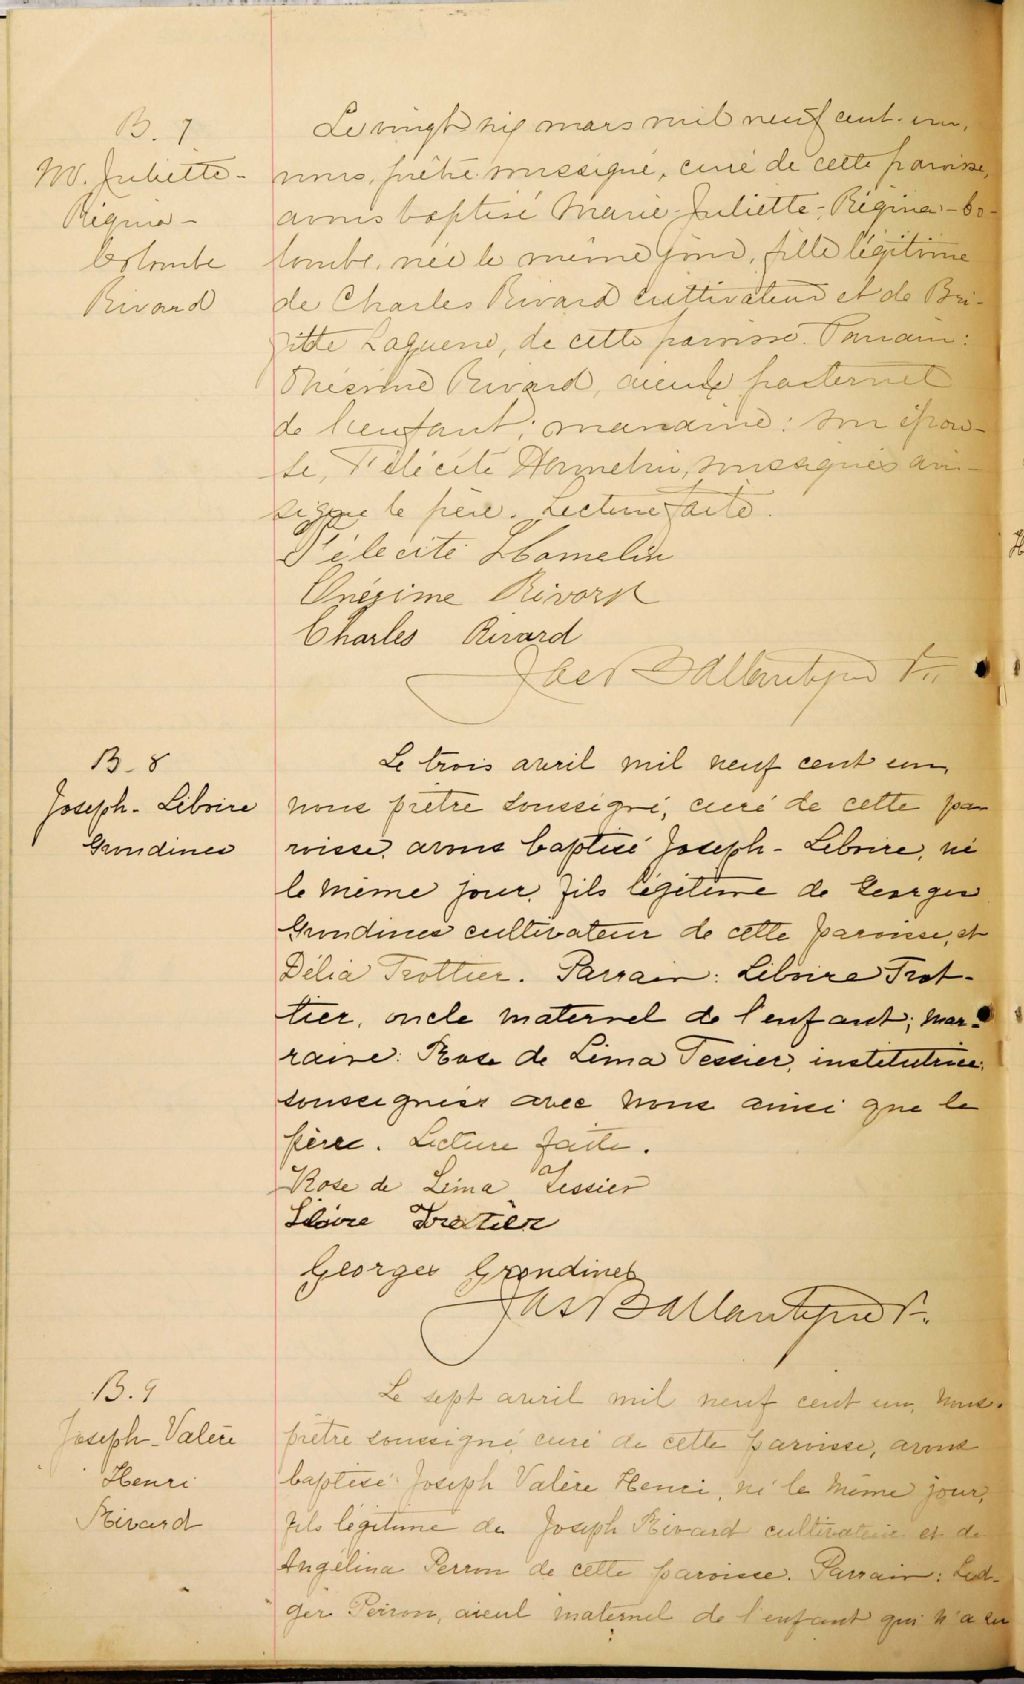 B. 7
M. Juliette-
Régina-
Colombe
Rivard
Le vingt six mars mil neuf cent un,
nous, prêtre soussigné, curé de cette paroisse,
avons baptisé Marie-Juliette-Régina-Co-
lombe, née le même jour, fille légitime
de Charles Rivard cultivateur et de Bri-
gitte Laguerre, de cette paroisse. Parrain:
Onésime Rivard, aieul paternel
de l'enfant; marraine: son épou-
se, Félécité Hamelin, soussignés ain-
si que le père. Lecture faite.
Félécité Hamelin
Onésime Rivard
Charles Rivard
Jas Ballantyne Ptre
B. 8
Joseph-Liboire
Grondines
Le trois avril mil neuf cent un,
nous prêtre soussigné, curé de cette pa
roisse, avons baptisé Joseph-Liboire, né
le même jour, fils légitime de Georges
Grondines cultivateur de cette paroisse, et
Délia Trottier. Parrain: Liboire Trot-
tier, oncle maternel de l'enfant; mar-
raine: Rose de Lima Tessier, institutrice,
soussignés avec nous ainsi que le
père. Lecture faite.
Rose de Lima Tessier
Liboire Trottier
Georges Grondines
Jas Ballantyne Ptre
B. 9
Joseph-Valère
Henri
Rivard
Le sept avril mil neuf cent un, nous
prêtre soussigné, curé de cette paroisse, avons
baptisé Joseph Valère Henri, né le même jour,
fils légitime de Joseph Rivard cultivateur et de
Angélina Perron de cette paroisse. Parrain: Led-
ger Perron, aieul maternel de l'enfant qui n'a su